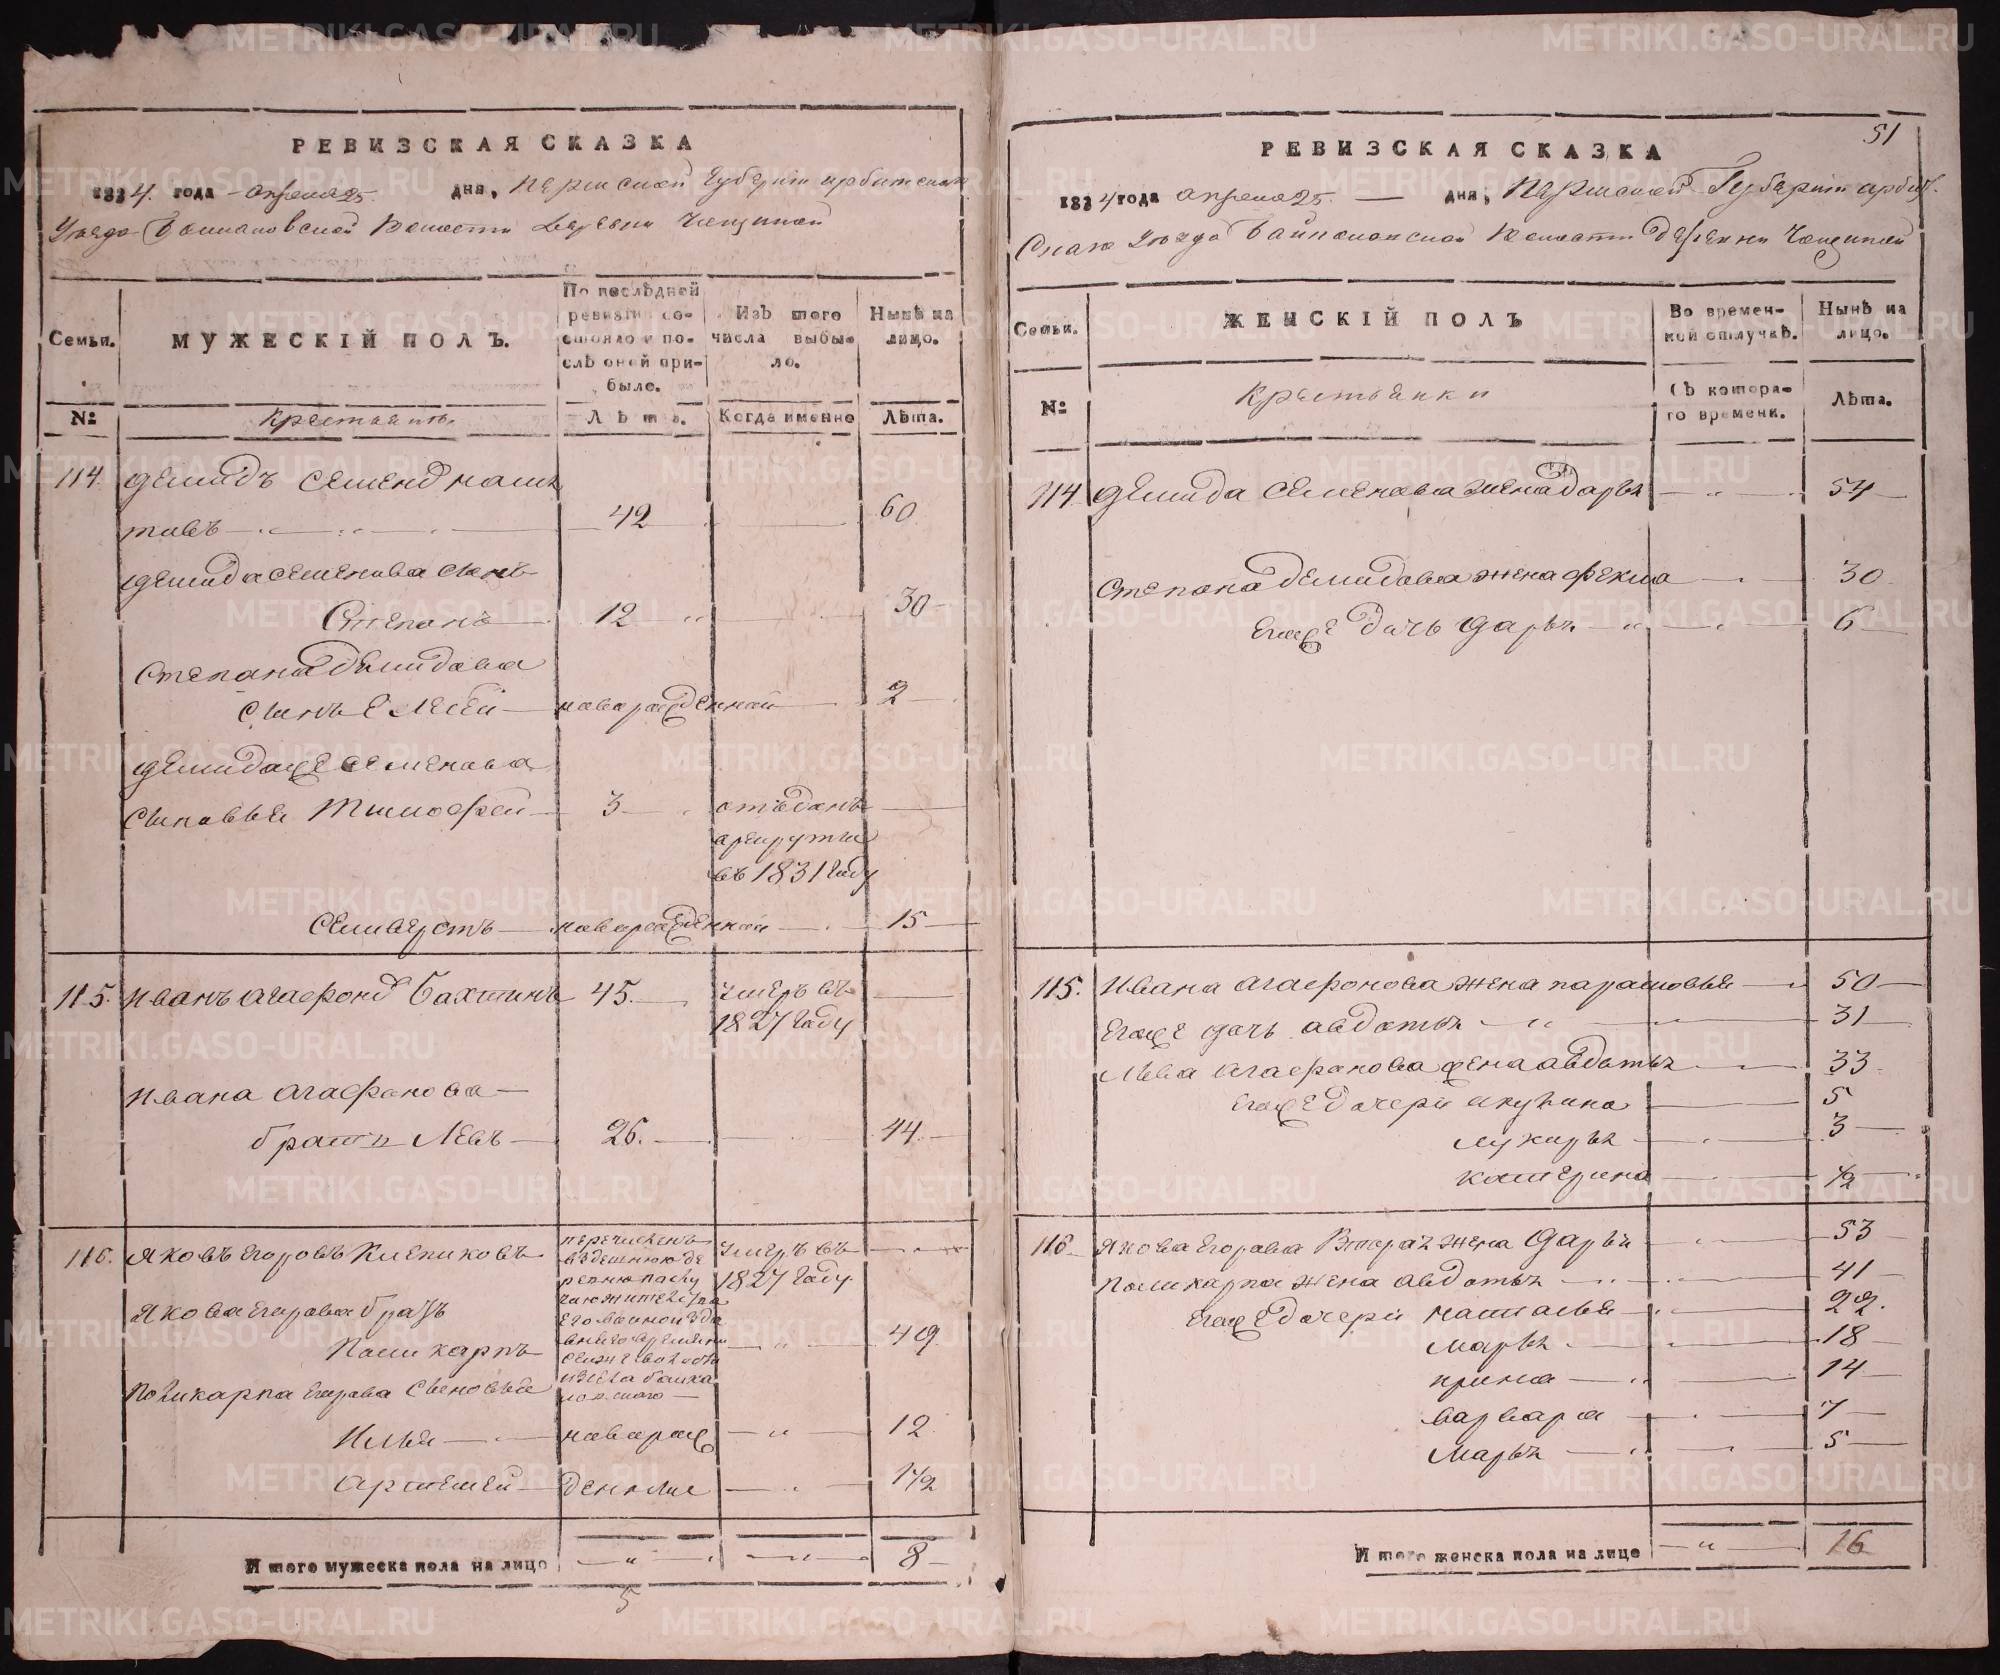 РЕВИЗСКАЯ СКАЗКА
1834. года апреля 25. дня, Пермской Губернiи Ирбитскаго
Уезда Волости Деревни
Семьи.
МУЖЕСКІЙ ПОЛЪ.
По послѣдней ревизіи со-стояло и по-слѣ оной при-было.
Изъ того числа выбы-ло.
Нынѣ на лицо.
№
Крестьянъ.
Лѣта.
Когда именно
Лѣта.
114. Демидъ Семенов
42 60
Демида Семенова сынъ
Степанъ 12 30
Степана Демидова
сынъ новорожденной 2
Демида же Семенова
сыновья Тимофей 3 отъданъ
в рекруты
въ 1831 году
Селиверстъ новорожденной 15
115. Иванъ Агафонов Бахтинъ 45. умеръ въ
1827 году
Ивана Агафонова
братъ Левъ 26. 44
116. Яковъ Егоровъ Клепиковъ перечисленъ умеръ въ
1827 году
Якова Егорова братъ
Поликарпъ 49
Поликарпа Егорова сыновья
Илья новорож 12
Артемей денные 1/2
Итого мужеска пола на лицо 8
5
51
РЕВИЗСКАЯ СКАЗКА
1834 года апреля 25. дня, Пермской Губернiи Ирбит.
Скаго Уезда Волости Деревни
Семьи.
ЖЕНСКІЙ ПОЛЪ
Во времен-ной отлучкѣ.
Нынѣ на лицо.
№
Крестьянки
Съ котора-го времени.
Лѣта.
114. Демида Семенова жена Дарья 54
Степана Демидова жена Фекла 30
Его же дочь Дарья 6
115. Ивана Агафонова жена Парасковья 50
Его же дочь Авдотья 31
Льва Агафонова жена Авдотья 33
Его же дочери Акулина 5
Лукирья 3
Катерина 1/2
116 Якова Егорова вторая жена Дарья 53
Поликарпа жена Авдотья 41
Его же дочери Наталья 22.
Марья 18
Ирина 14
Варвара 7
Марья 5
Итого женска пола на лицо 16
METRIKI.GASO-URAL.RU